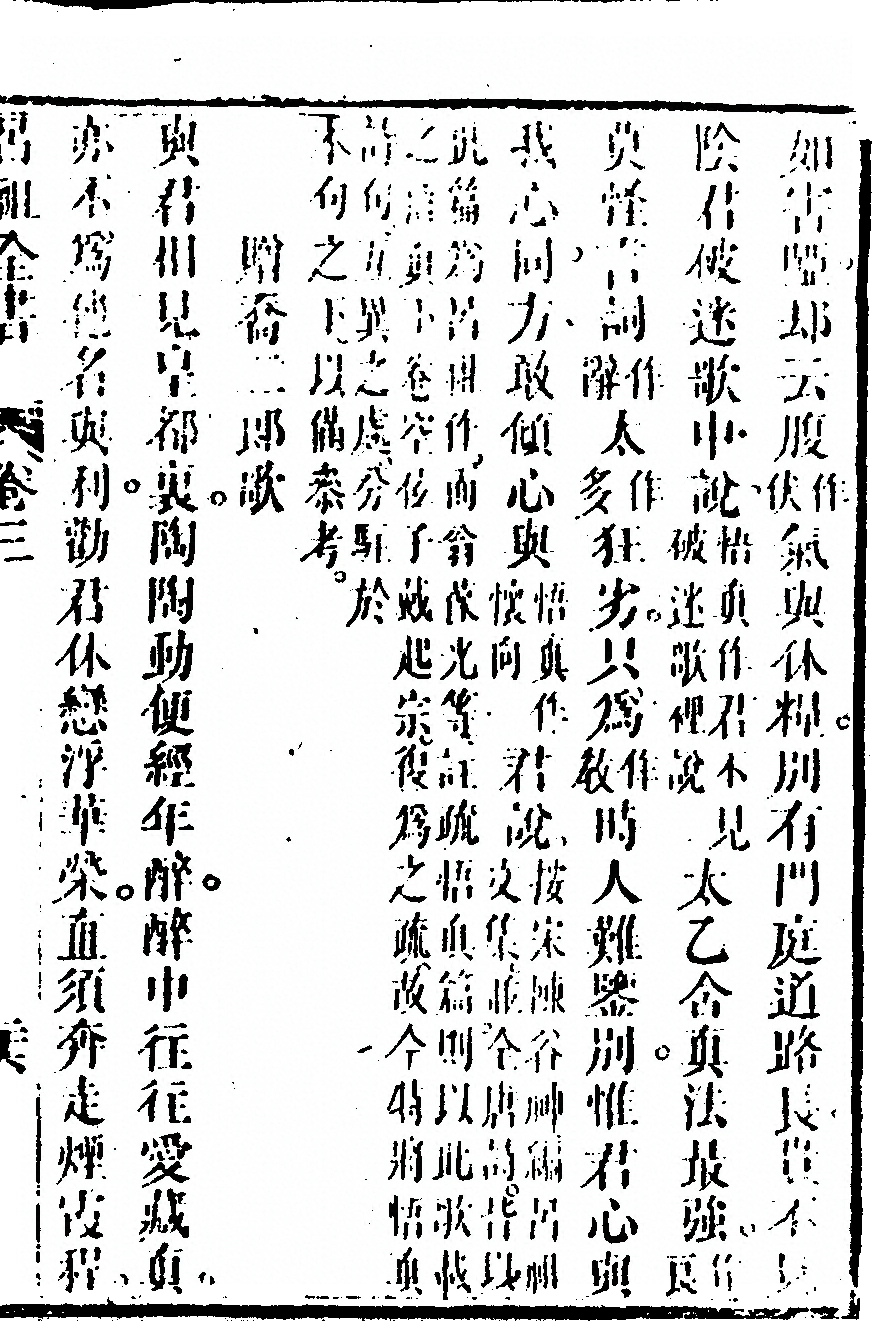 如害啞却云腹作伏氣與休糧。別有門庭道路長、豈不見
陰君破迷歌中說、悟真作君不見破迷歌裡說太乙含真法最強、作良
莫怪言詞作辭太作多狂劣。只為作教時人難鑒別。惟君心與
我心同、方敢傾心與悟真作懷向君說、按宋陳谷神編呂祖文集、並全唐詩。皆以
此篇為呂祖作、而翁葆光等註疏悟真篇則以此歌載
之悟真下卷空位子戴起宗、復為之疏、故今特將悟真
詩句互異之處、分註於
本句之下、以備參考。
贈喬二郎歌
與君相見皇都裏。陶陶動便經年醉。醉中往往愛藏真。
亦不為他名與利。勸君休戀浮華榮。直須奔走煙霞程、
呂祖全書 卷三